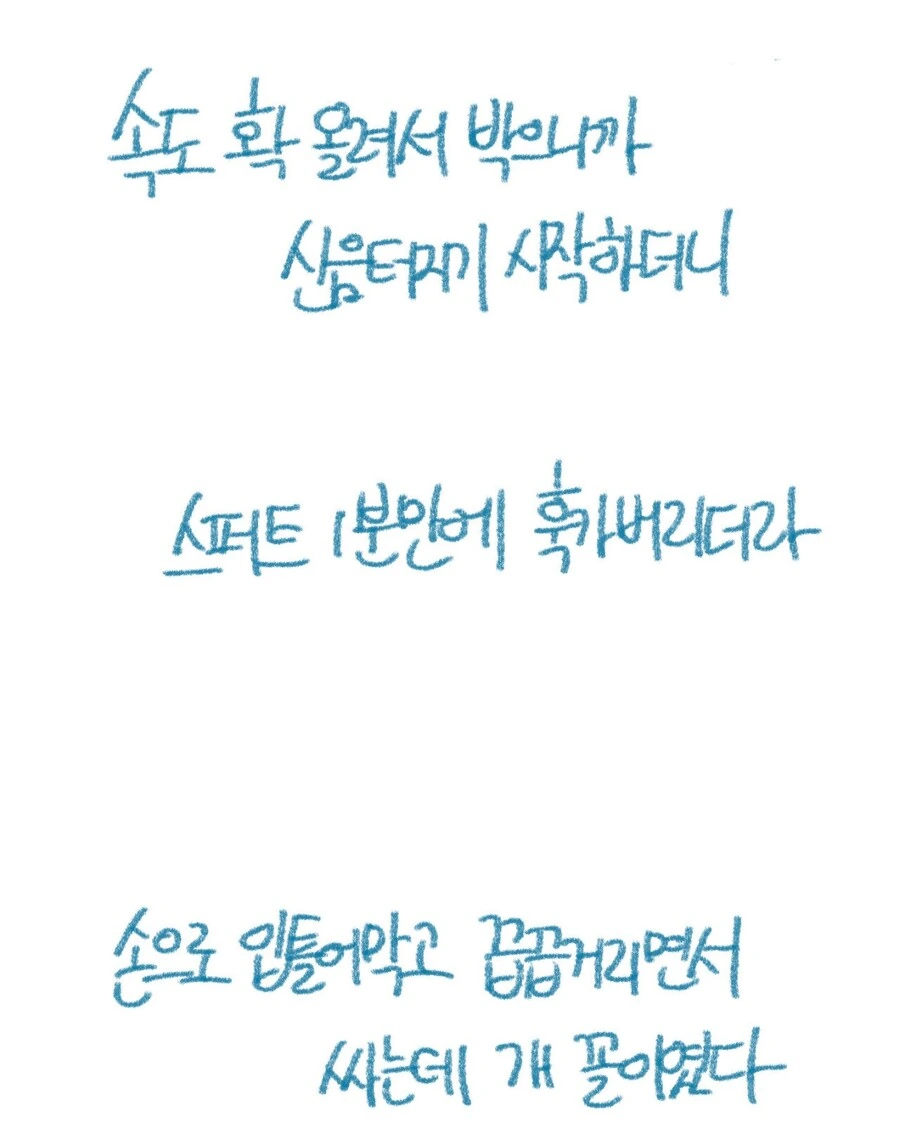 속도 확 올려서 박으니까
신음터지기 시작하더니
스퍼트 1분안에 훅가버리더라
손으로 입틀어막고 끕끕거리면서
싸는데 개 꼴이였다